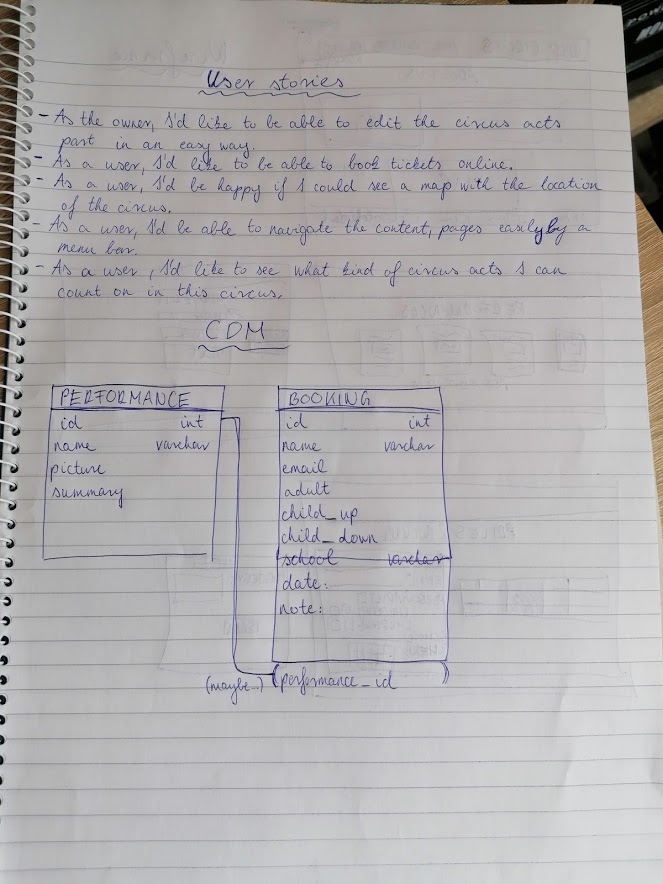 User stories
- As the owner, I'd like to be able to edit the circus acts
part in an easy way.
- As a user, I'd like to be able to book tickets online.
- As a user, I'd be happy if I could see a map with the location
of the circus.
- As a user, I'd be able to navigate the content, pages easily by a
menu bar.
- As a user, I'd like to see what kind of circus acts I can
count on in this circus.
CDM
PERFORMANCE
id int
name varchar
picture
summary
BOOKING
id int
name varchar
email
adult
child_up
child_down
school varchar
date:
note:
(maybe..) (performance_id )